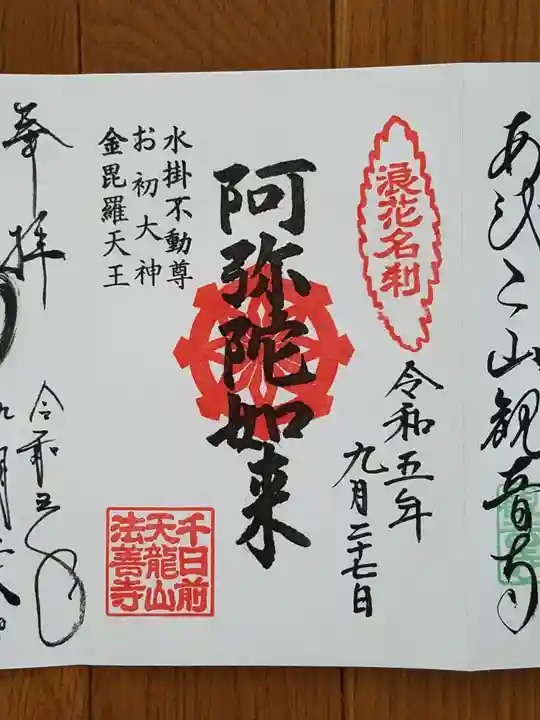 あびこ山観音寺
浪花名刹
令和五年
九月二十七日
阿弥陀如来
水掛不動尊
お初大神
金毘羅天王
千日前
天龍山
法善寺
奉拝
令和五
九月二